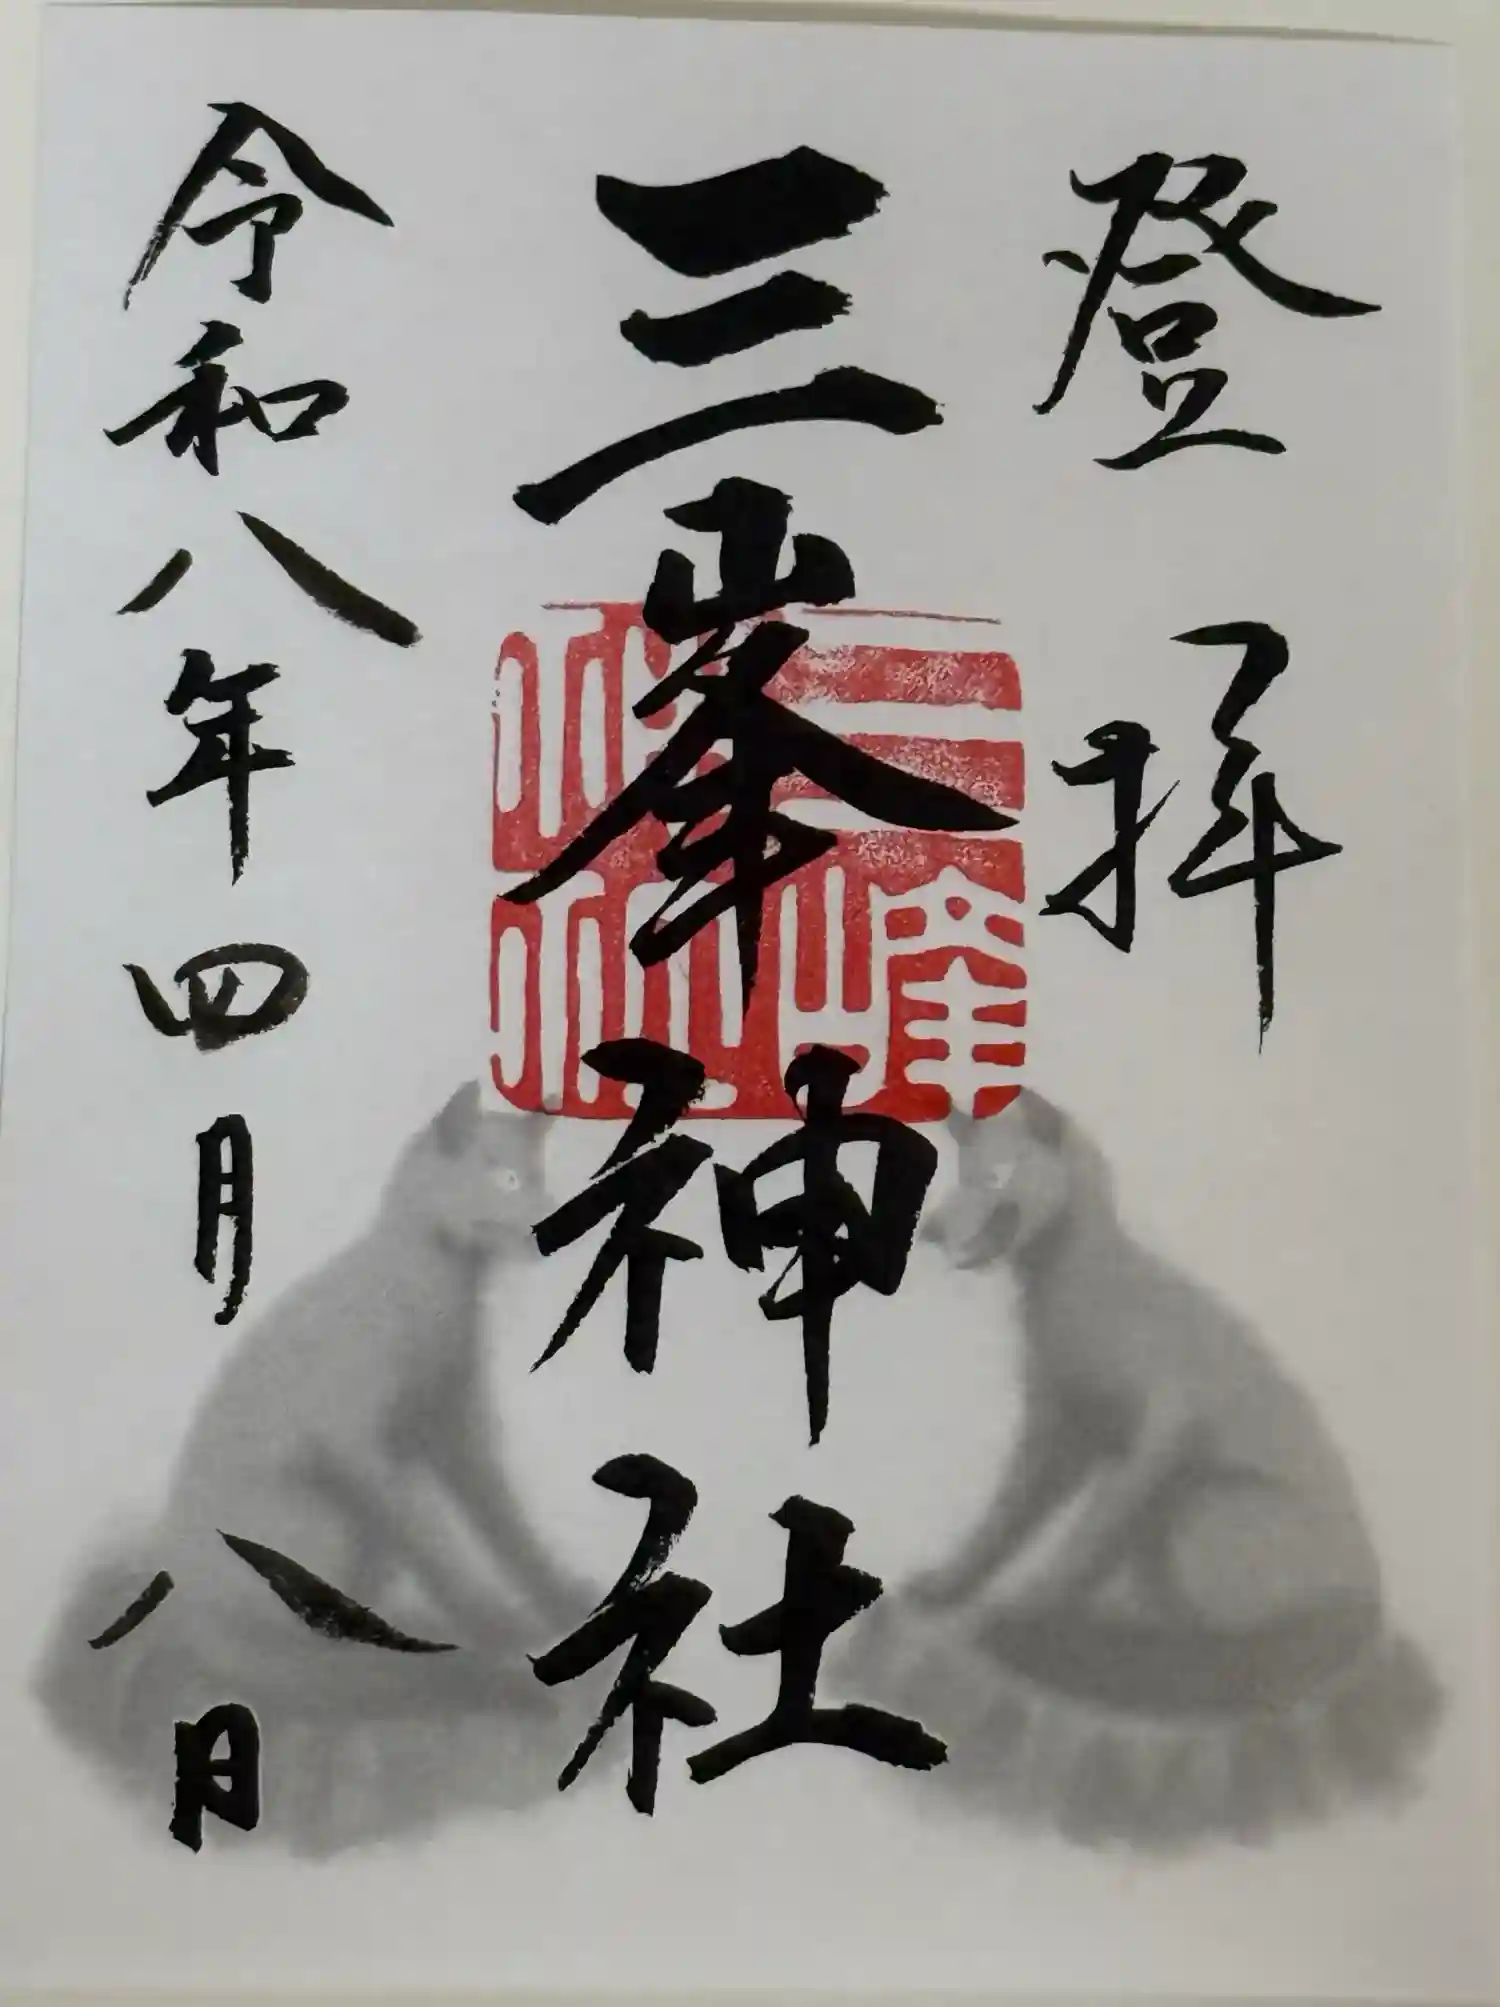 登拝
三峯神社
三峰神社
令和八年四月八日